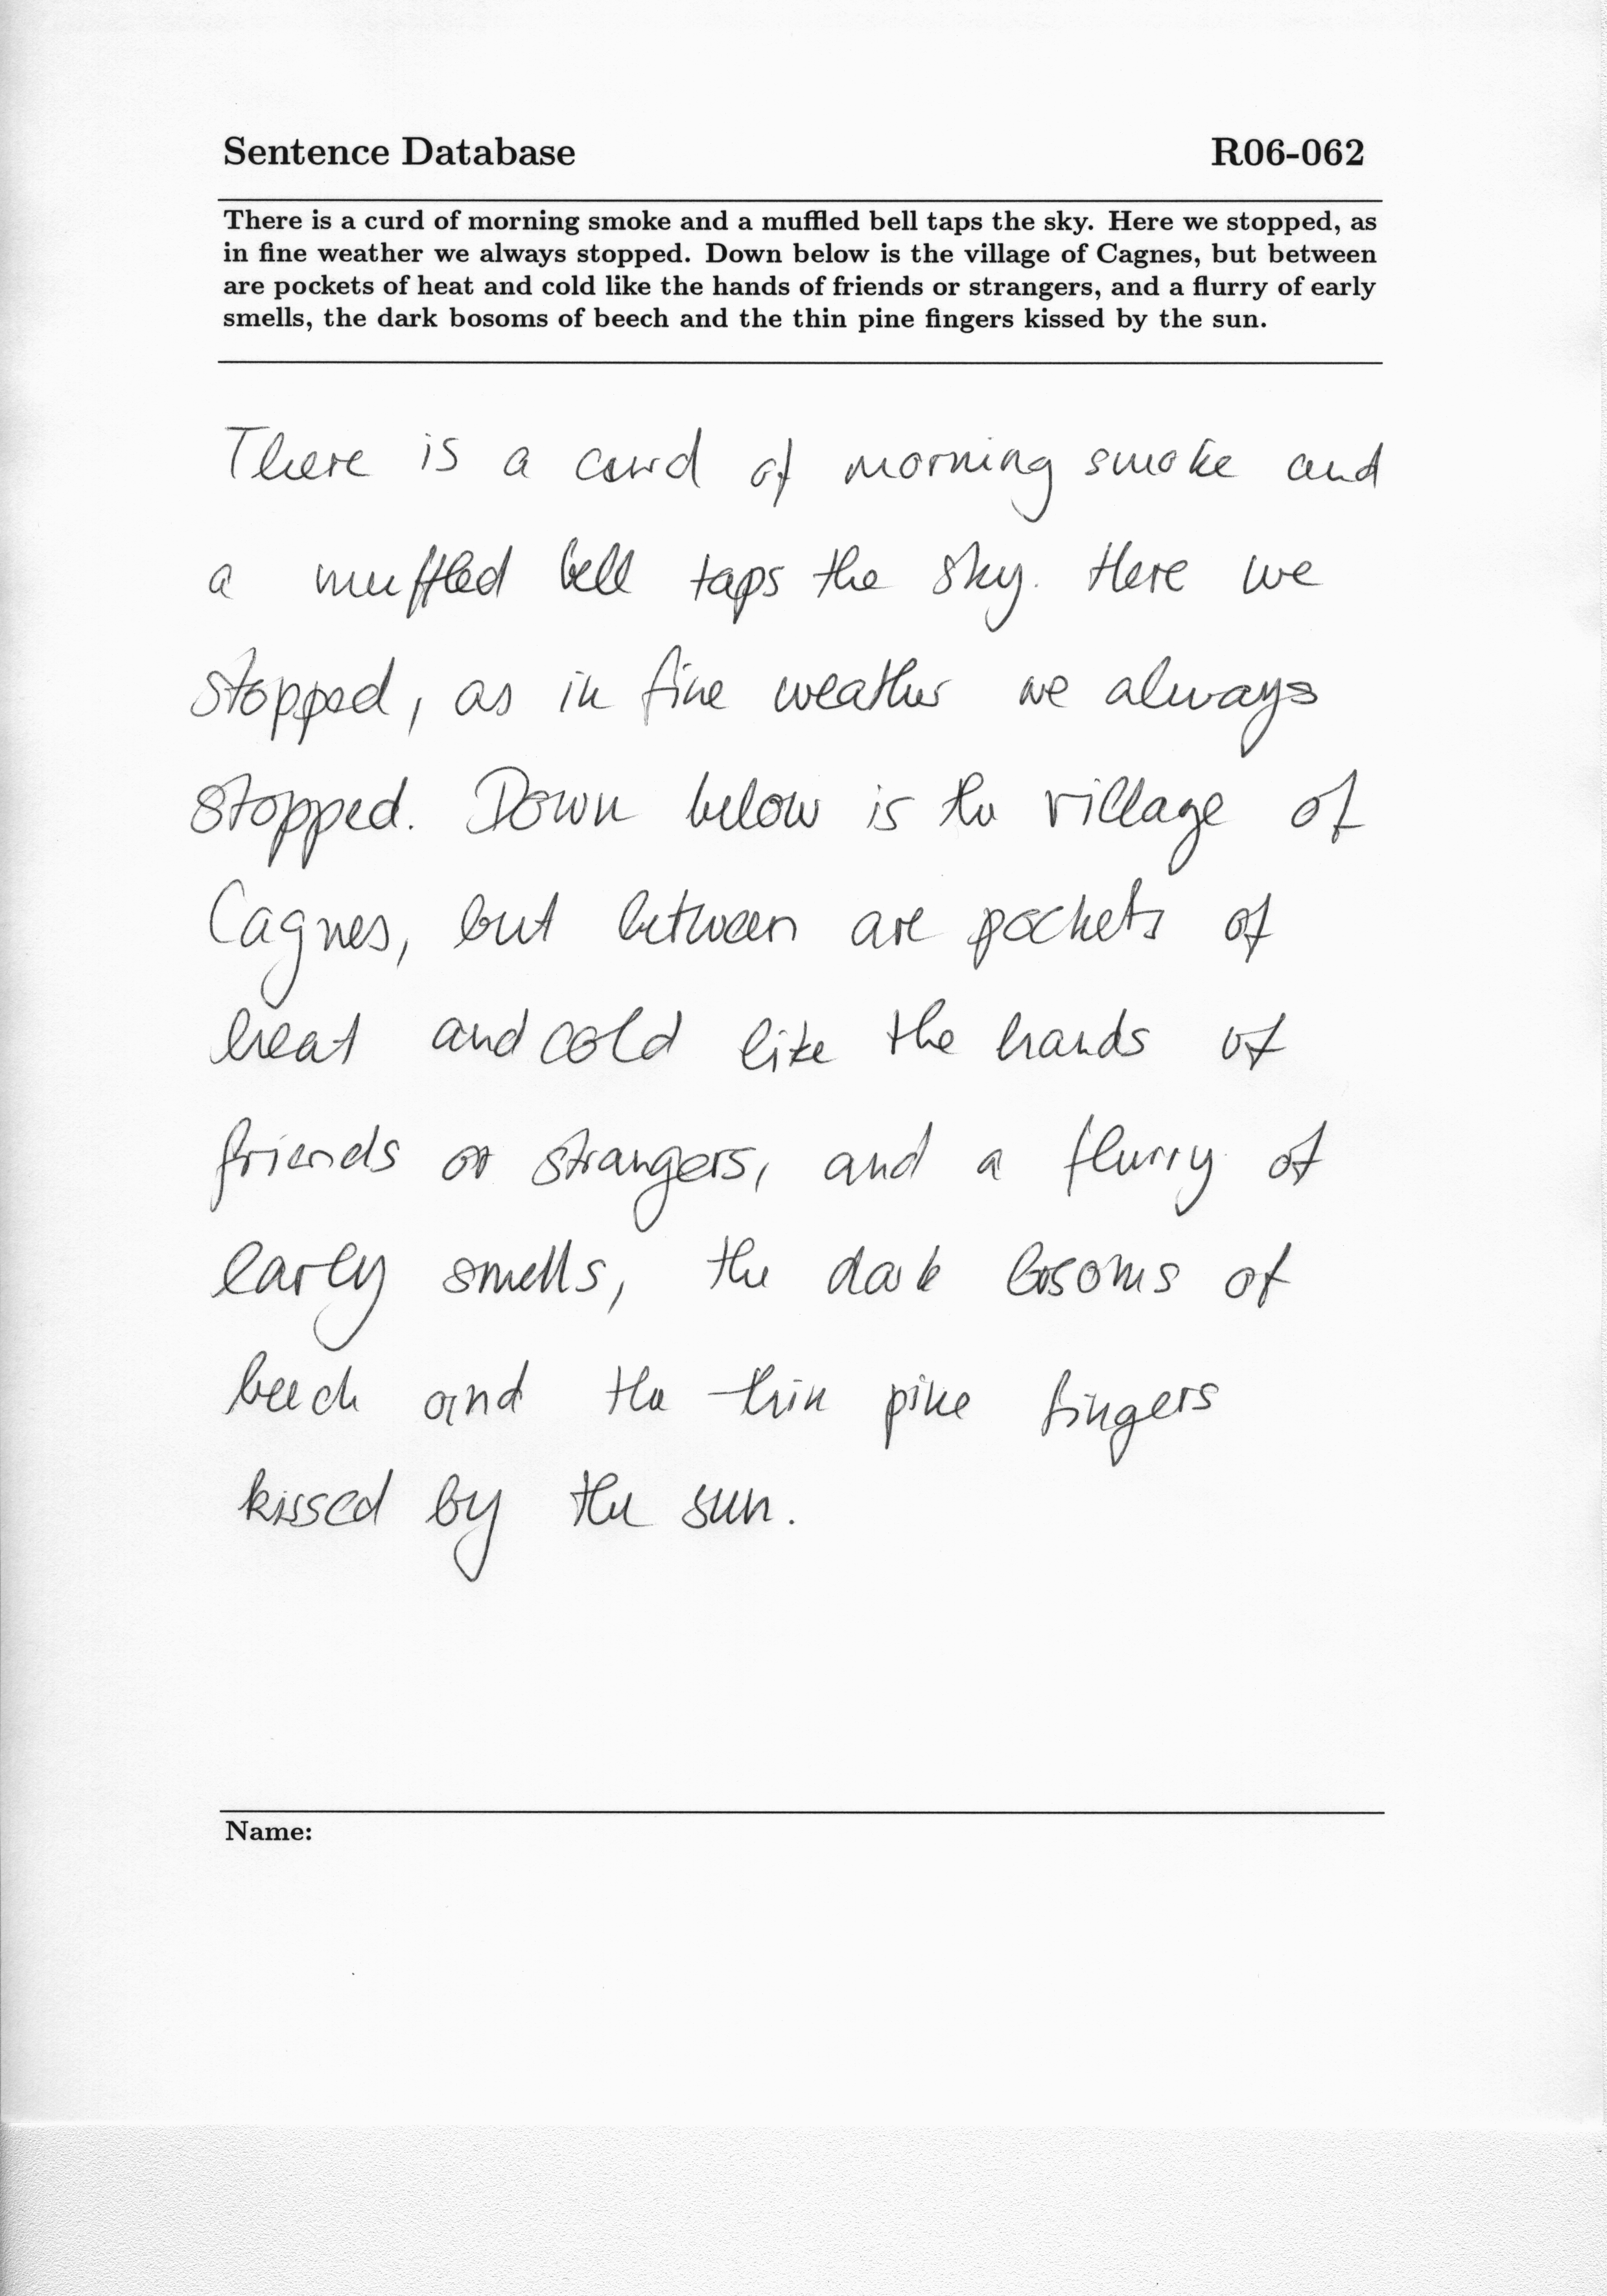 Sentence Database R06-062
There is a curd of morning smoke and a muffled bell taps the sky. Here we stopped, as
in fine weather we always stopped. Down below is the village of Cagnes, but between
are pockets of heat and cold like the hands of friends or strangers, and a flurry of early
smells, the dark bosoms of beech and the thin pine fingers kissed by the sun.
There is a curd of morning smoke and
a muffled bell taps the sky. Here we
stopped, as in fine weather we always
stopped. Down below is the village of
Cagnes, but between are pockets of
heat and cold like the hands of
friends or strangers, and a flurry of
early smells, the dark bosoms of
beech and the thin pine fingers
kissed by the sun.
Name: